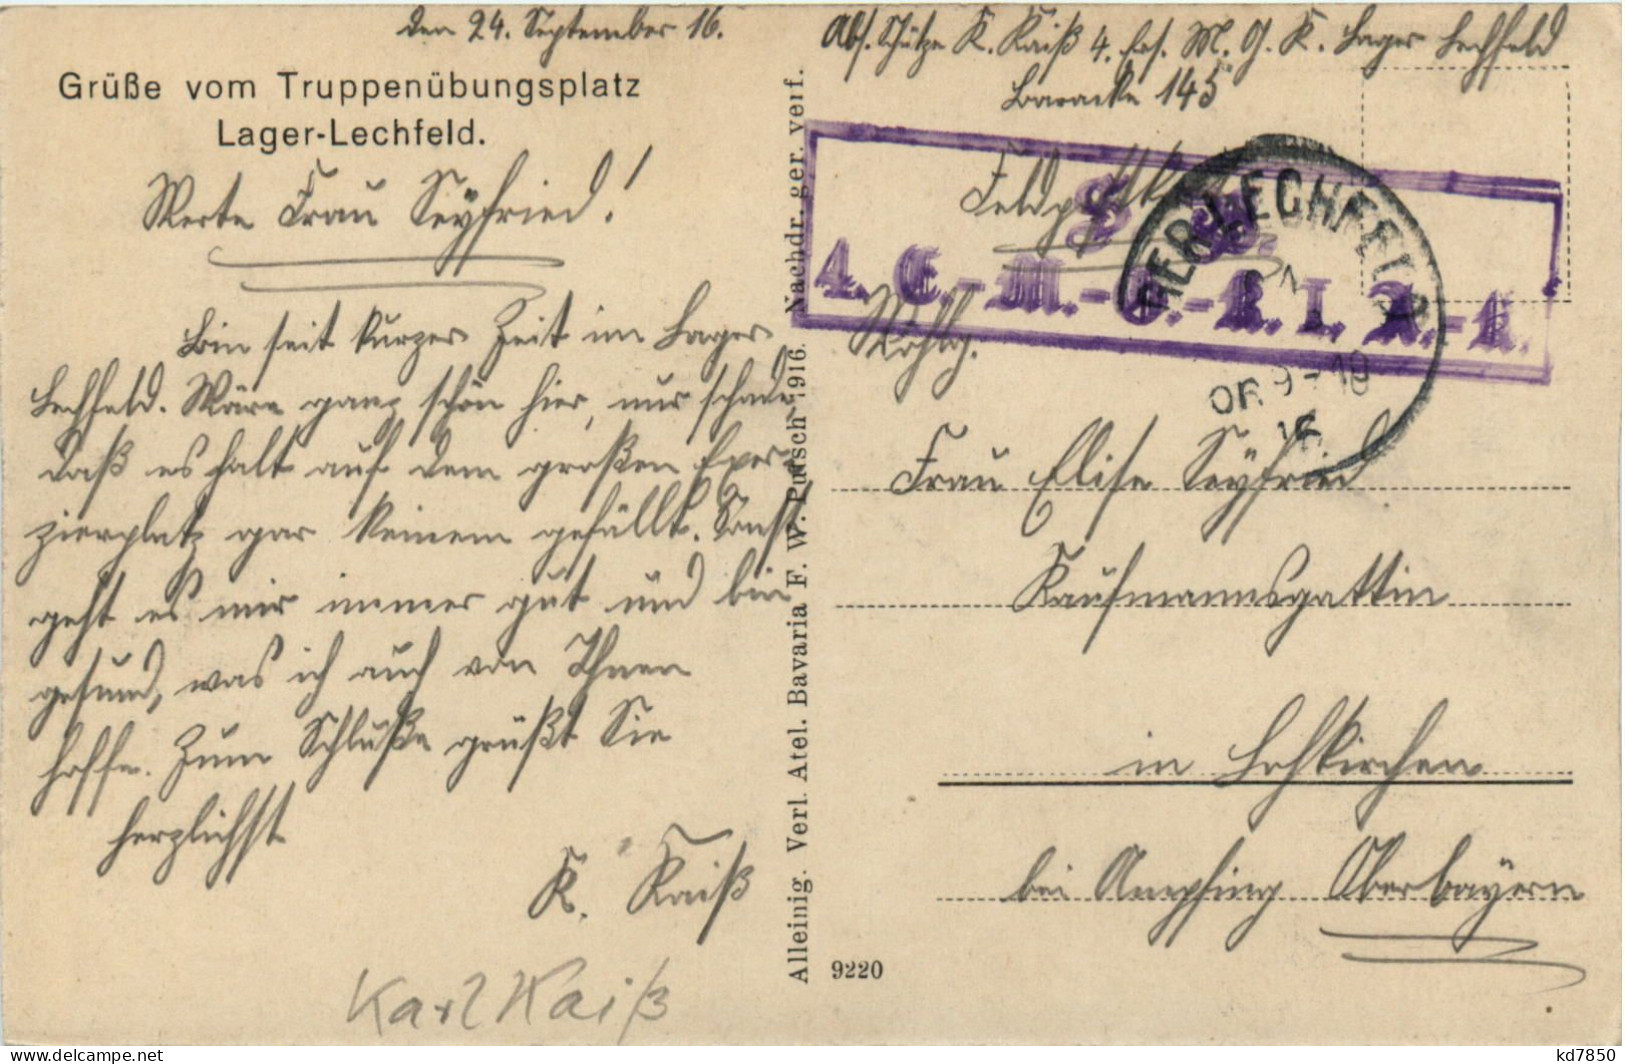 den 24. September 16.
Grüße vom Truppenübungsplatz
Lager-Lechfeld.
Werte Frau Seyfried!
Bin seit kurzer Zeit im Lager
Lechfeld. Wäre ganz schön hier, nur schade,
daß es halt auf dem großen Exer-
zierplatz gar keinem gefällt. Sonst
geht es mir immer gut und bin
gesund, was ich auch von Ihnen
hoffe. Zum Schluße grüßt Sie
herzlichst
K. Kaiß
Karl Kaiß
Alleinig. Verl. Atel. Bavaria F. W. Putsch 1916. Nachdr. ger. verf.
9220
Abs. Schütze K. Kaiß 4. Ers. M. G. K. Lager Lechfeld
Baracke 145
Feldpostkarte
S. B.
4. E.-M.-G.-K. I. A.-K.
LAGER LECHFELD
9-10
16
Wohlg.
Frau Elise Seyfried
Kaufmannsgattin
in Lohkirchen
bei Ampfing Oberbayern
kd7850